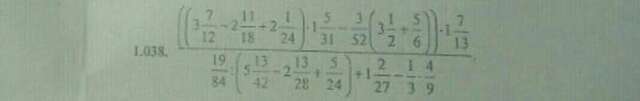 1.038. ((3 7/12 - 2 11/18 + 2 1/24) · 1 5/31 - 3/52 (3 1/2 + 5/6)) · 1 7/13
19/84 : (5 13/42 - 2 13/28 + 5/24) + 1 2/27 - 1/3 · 4/9